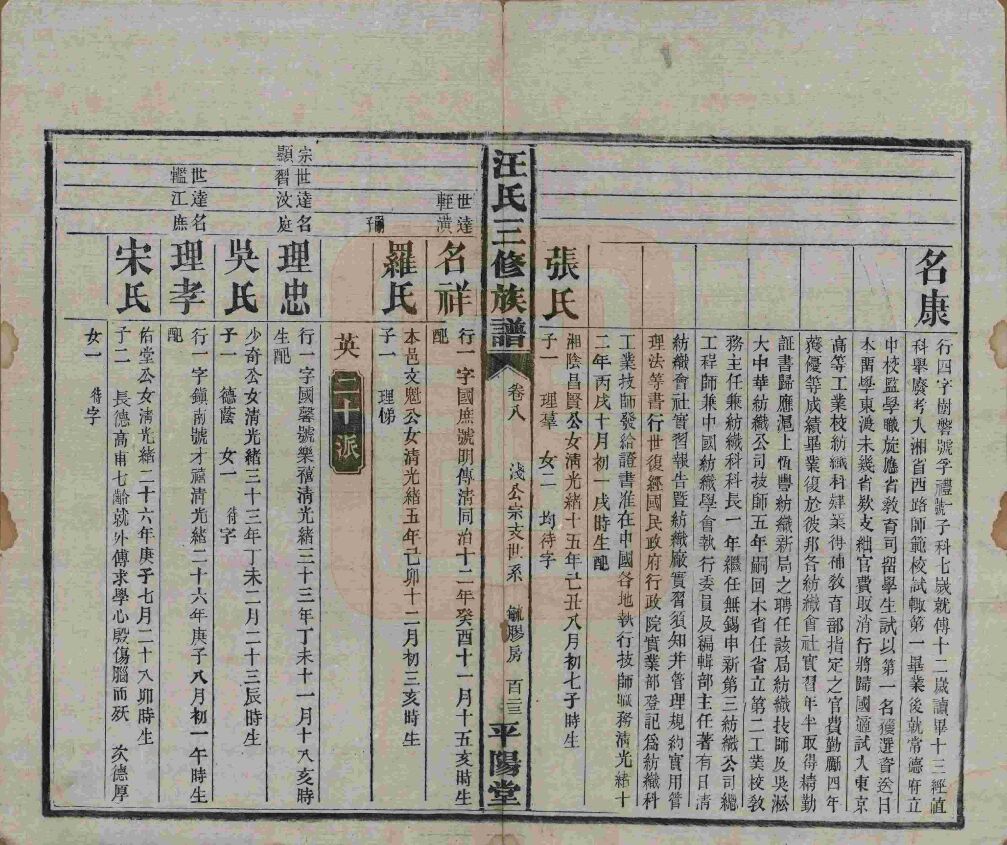 名康
行四字樹磐號孚禮號子科七歲就傅十二歲讀畢十三經值
科舉廢考入湘省西路師範校試輒第一畢業後就常德府立
中校監學職旋應省教育司留學生試以第一名獲選資送日
本留學東渡未幾省欵支絀官費取消行將歸國適試入東京
高等工業校紡織科肄業得補教育部指定之官費勤勵四年
蒇優等成績畢業復於彼邦各紡織會社實習年半取得精勤
証書歸應滬上恆豐紡織新局之聘任該局紡織技師及吳淞
大中華紡織公司技師五年嗣回本省任省立第二工業校教
務主任兼紡織科科長一年繼任無錫申新第三紡織公司總
工程師兼中國紡織學會執行委員及編輯部主任著有日清
紡織會社實習報告暨紡織廠實習須知并管理規約實用管
理法等書行世復經國民政府行政院實業部登記為紡織科
工業技師發給證書准在中國各地執行技師職務清光緒十
二年丙戌十月初一戌時生配
張氏
湘陰昌賢公女清光緒十五年己丑八月初七子時生
子一 理羣 女二 均待字
汪氏三修族譜
卷八 淺公宗支世系 毓膠房 百三三
平陽堂
世達
輊潢
名祥
行一字國庶號明傳清同治十二年癸酉十一月十五亥時生
配
嗣子
羅氏
本邑文魁公女清光緒五年己卯十二月初三亥時生
子一 理俤
英 二十派
宗世達名
顯習汝庭
理忠
行一字國馨號樂禧清光緒三十三年丁未十一月十八亥時
生配
吳氏
少奇公女清光緒三十三年丁未二月二十三辰時生
子一 德蔭 女一 待字
世達名
艦江庶
理孝
行一字鎮南號才禧清光緒二十六年庚子八月初一午時生
配
宋氏
佑堂公女清光緒二十六年庚子七月二十八卯時生
子二 長德高甫七齡就外傅求學心殷傷腦而殀 次德厚
女一 待字